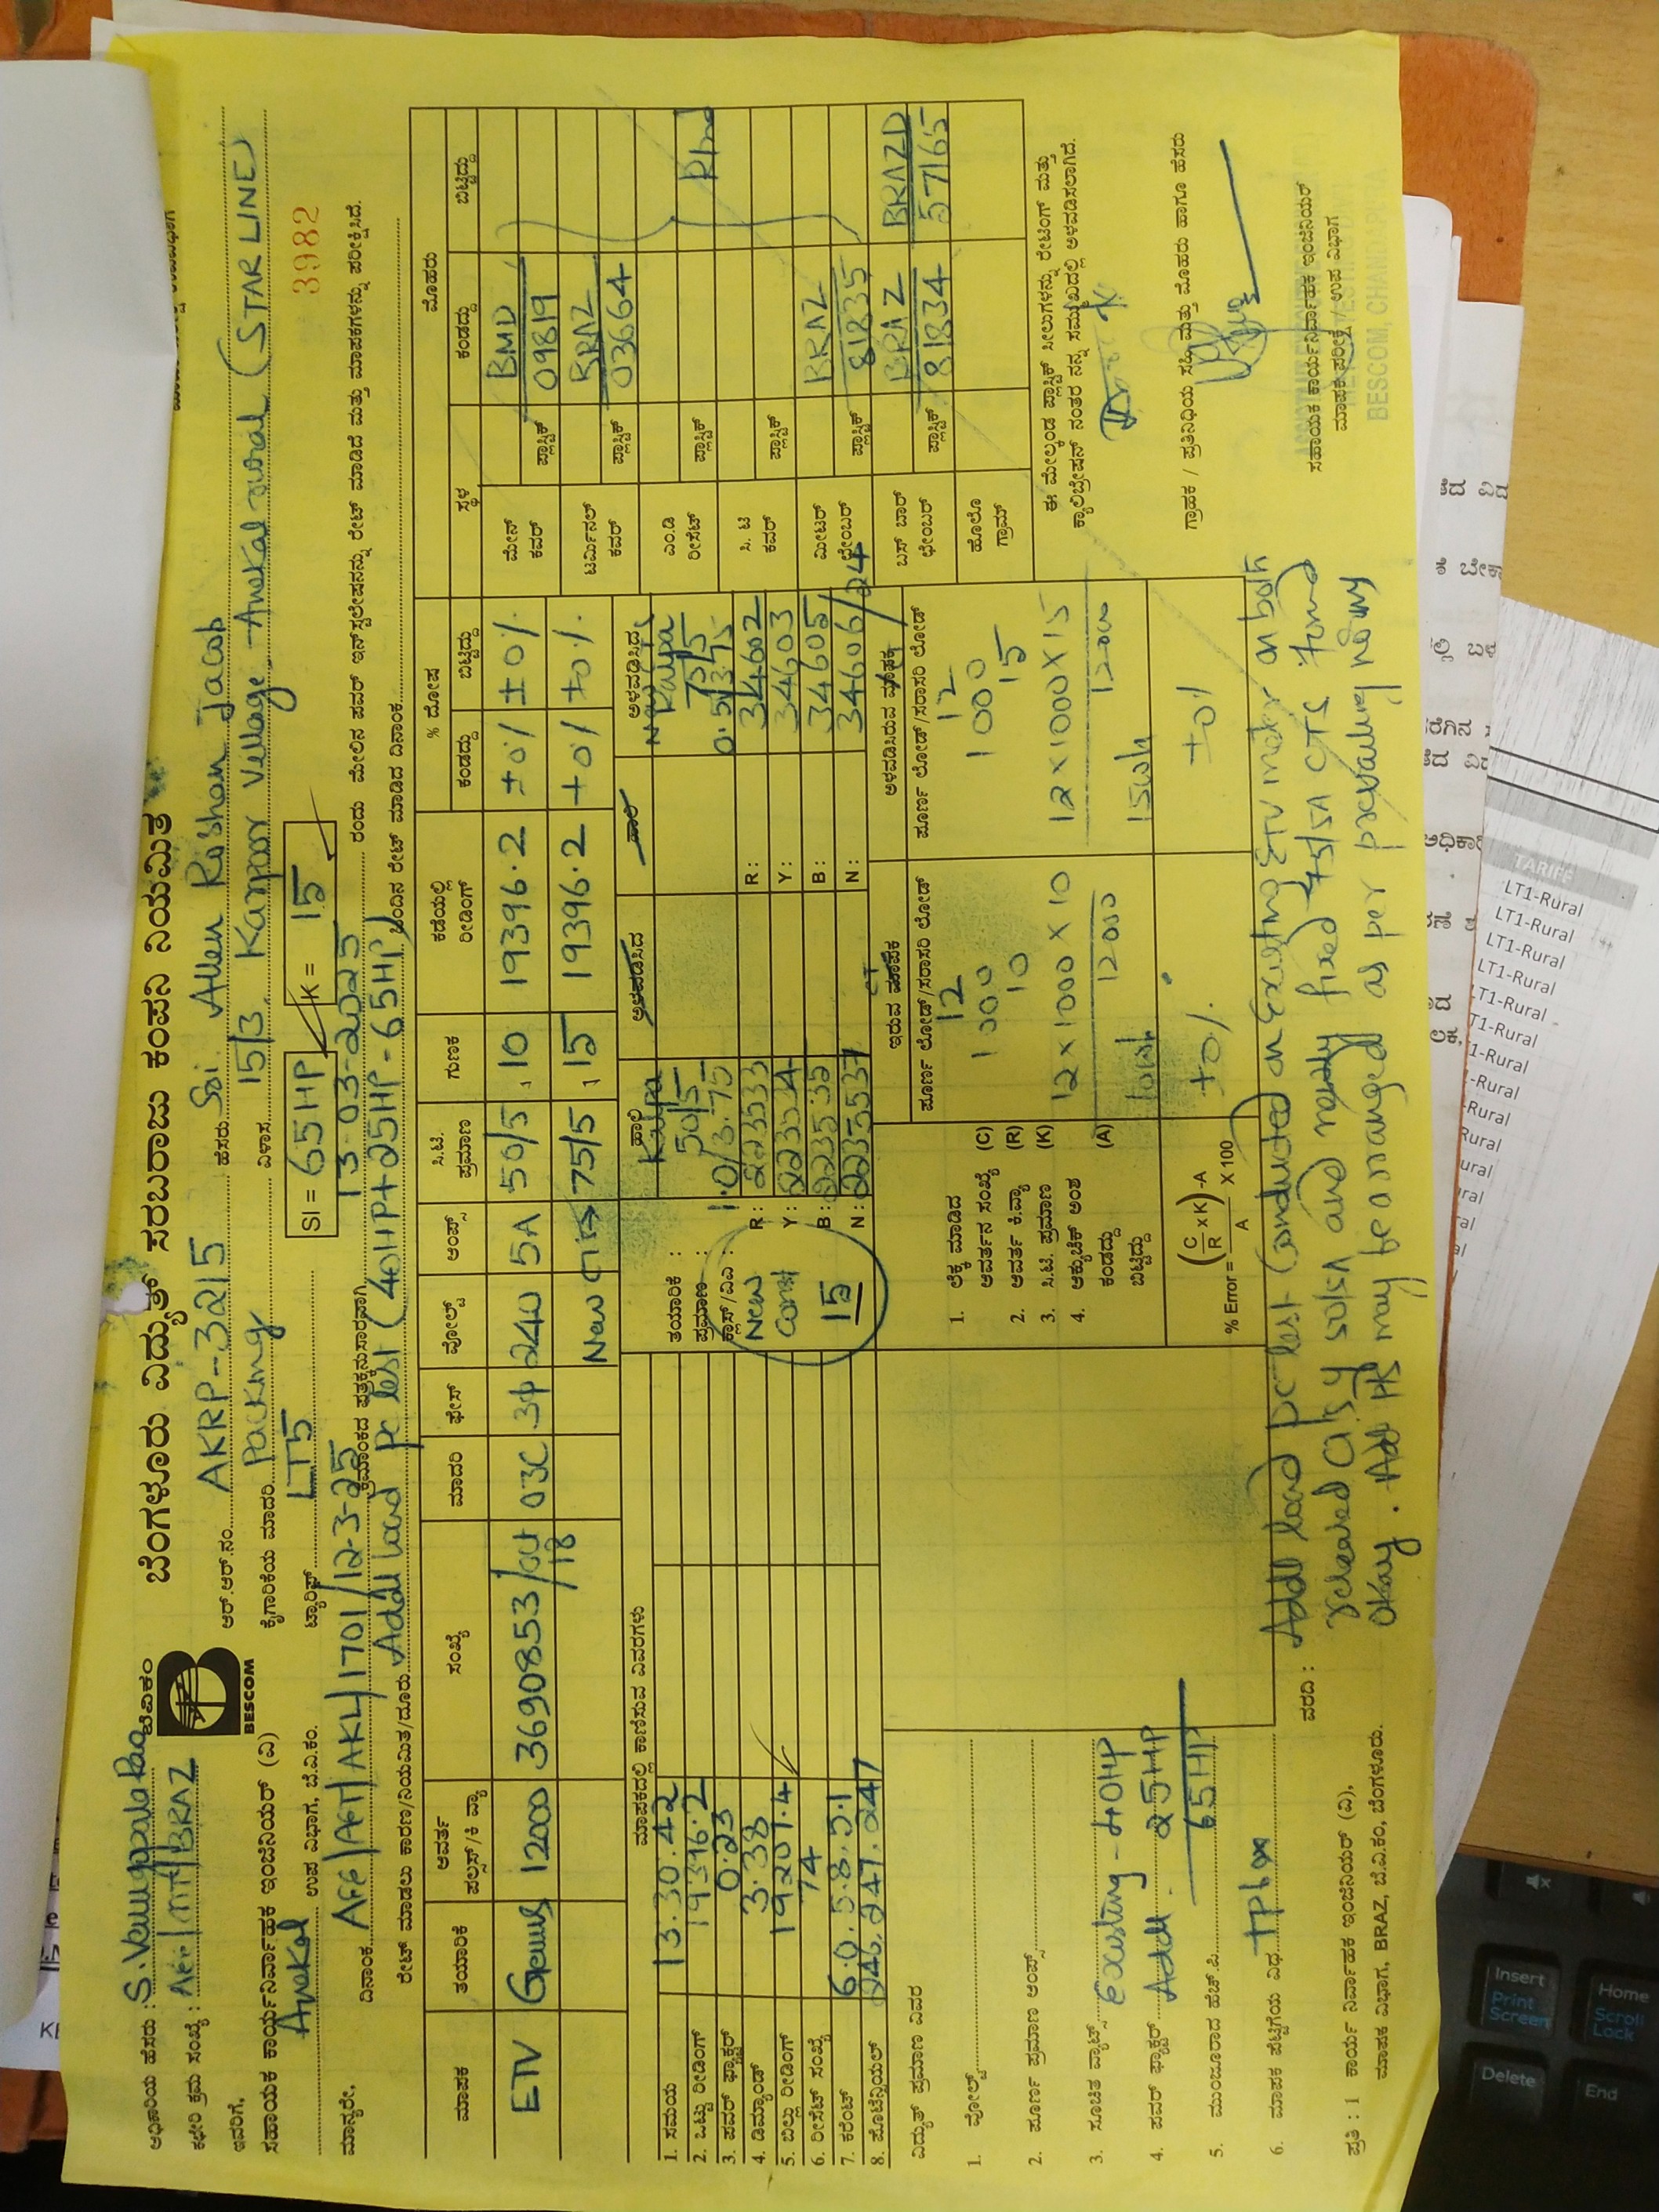 ಬೆಂಗಳೂರು ವಿದ್ಯುತ್ ಸರಬರಾಜು ಕಂಪನಿ ನಿಯಮಿತ
ಅಧಿಕಾರಿಯ ಹೆಸರು : S. Venugopala Rao
ಬೆವಿಕಂ
BESCOM
ಕಛೇರಿ ಕ್ರಮ ಸಂಖ್ಯೆ : AEE/MT/BRAZ
ಇವರಿಗೆ,
ಸಹಾಯಕ ಕಾರ್ಯನಿರ್ವಾಹಕ ಇಂಜಿನಿಯರ್ (ವಿ)
Anekal ಉಪ ವಿಭಾಗ, ಬೆ.ವಿ.ಕಂ.
ಆರ್.ಆರ್.ನಂ. AKRP-3215 ಹೆಸರು Sri Allen Roshan Jacob
ಕೈಗಾರಿಕೆಯ ಮಾದರಿ Packing ವಿಳಾಸ 15/3 Karpoor Village Anekal rural (STAR LINE)
ಟ್ಯಾರಿಫ್ LT5 SI = 65HP K = 15 3982
ಮಾನ್ಯರೇ,
ದಿನಾಂಕ AEE/AET/AKL/1701/12-3-25 ಕ್ರಮಾಂಕದ ಪತ್ರಕ್ಕನುಸಾರವಾಗಿ 13-03-2025 ರಂದು ಮೇಲಿನ ಪವರ್ ಇನ್‌ಸ್ಟಲೇಷನನ್ನು ರೇಟ್ ಮಾಡಿದೆ ಮತ್ತು ಮಾಪಕಗಳನ್ನು ಪರೀಕ್ಷಿಸಿದೆ.
ರೇಟ್ ಮಾಡಲು ಕಾರಣ/ನಿಯಮಿತ/ದೂರು Addl load pc test (40HP+25HP-65HP) ಹಿಂದಿನ ರೇಟ್ ಮಾಡಿದ ದಿನಾಂಕ
ಮಾಪಕ ತಯಾರಿಕೆ ಆವರ್ತ ಪಲ್ಸಸ್/ಕಿ ವ್ಯಾ ಸಂಖ್ಯೆ ಮಾದರಿ ಫೇಸ್ ವೋಲ್ಟ್ ಆಂಪ್ಸ್ ಸಿ.ಟಿ. ಪ್ರಮಾಣ ಗುಣಕ ಕಡೆಯಲ್ಲಿ ರೀಡಿಂಗ್ % ದೋಷ ಕಂಡದ್ದು ಬಿಟ್ಟಿದ್ದು
ETV Genus 1200 3690853/ 03C 3φ 240 5A 50/5 10 19396.2 ±0% ±0%
New CTs 75/5 15 19396.2 +0% ±0%
ಮೊಹರು
ಸ್ಥಳ ಕಂಡದ್ದು ಬಿಟ್ಟಿದ್ದು
ಮೇನ್ ಕವರ್ ಪ್ಲಾಸ್ಟಿಕ್ BMD 09819
ಟರ್ಮಿನಲ್ ಕವರ್ ಪ್ಲಾಸ್ಟಿಕ್ BRAZ 03664
ಎಂ.ಡಿ ರೀಸೆಟ್ ಪ್ಲಾಸ್ಟಿಕ್
ಸಿ. ಟಿ ಕವರ್ ಪ್ಲಾಸ್ಟಿಕ್
ಮೀಟರ್ ಛೇಂಬರ್ ಪ್ಲಾಸ್ಟಿಕ್ BRAZ 81835
ಬಸ್ ಬಾರ್ ಛೇಂಬರ್ ಪ್ಲಾಸ್ಟಿಕ್ BRAZ 81834 BRAZD 57165
ಹೊಲೊ ಗ್ರಾಮ್
ಮಾಪಕದಲ್ಲಿ ಕಾಣಿಸುವ ವಿವರಗಳು
1. ಸಮಯ 13.30.42
2. ಒಟ್ಟು ರೀಡಿಂಗ್ 19396.2
3. ಪವರ್ ಫ್ಯಾಕ್ಟರ್ 0.23
4. ಡಿಮ್ಯಾಂಡ್ 3.38
5. ಬಿಲ್ಲು ರೀಡಿಂಗ್ 19201.4
6. ರೀಸೆಟ್ ಸಂಖ್ಯೆ 74
7. ಕರೆಂಟ್ 6.0, 5.8, 5.1
8. ಪೊಟೆನ್ಶಿಯಲ್ 246, 247, 247
ಹಾಲಿ ಅಳವಡಿಸಿದ
ತಯಾರಿಕೆ : Kalpa New Kalpa
ಪ್ರಮಾಣ : 50/5 75/5
ಕ್ಲಾಸ್/ವಿಎ : 1.0/3.75 0.5/3.75
R: 223533 R: 34602
Y: 223534 Y: 34603
B: 223535 B: 34605
N: 223537 N: 34606/24
New Const 15
ಇರುವ ಮಾಪಕ CT ಅಳವಡಿಸಿರುವ ಮಾಪಕ
ಪೂರ್ಣ ಲೋಡ್/ಸರಾಸರಿ ಲೋಡ್ ಪೂರ್ಣ ಲೋಡ್/ಸರಾಸರಿ ಲೋಡ್
1. ಲೆಕ್ಕ ಮಾಡಿದ ಆವರ್ತನ ಸಂಖ್ಯೆ (C) 12 12
2. ಆವರ್ತ ಕೆ.ವ್ಯಾ (R) 1000 1000
3. ಸಿ.ಟಿ. ಪ್ರಮಾಣ (K) 10 15
4. ಆಕ್ಯುಚೆಕ್ ಅಂಶ 12 x 1000 x 10 12 x 1000 x 15
ಕಂಡದ್ದು (A) 12000 12000
ಬಿಟ್ಟಿದ್ದು 10wh 15wh
% Error = (C/R x K)-A / A X 100 ±0% ±0%
ವಿದ್ಯುತ್ ಪ್ರಮಾಣ ವಿವರ
1. ವೋಲ್ಟ್
2. ಪೂರ್ಣ ಪ್ರಮಾಣ ಆಂಪ್ಸ್
3. ಸೂಚಿತ ವ್ಯಾಟ್ಸ್ Existing - 40HP
4. ಪವರ್ ಫ್ಯಾಕ್ಟರ್ Addl. 25HP
5. ಮಂಜೂರಾದ ಹೆಚ್.ಪಿ. 65HP
6. ಮಾಪಕ ಪೆಟ್ಟಿಗೆಯ ವಿಧ TP box
ಈ ಮೇಲ್ಕಂಡ ಪ್ಲಾಸ್ಟಿಕ್ ಸೀಲುಗಳನ್ನು ರೇಟಿಂಗ್ ಮತ್ತು
ಕ್ಯಾಲಿಬ್ರೇಷನ್ ನಂತರ ನನ್ನ ಸಮ್ಮುಖದಲ್ಲಿ ಅಳವಡಿಸಲಾಗಿದೆ.
ಗ್ರಾಹಕ / ಪ್ರತಿನಿಧಿಯ ಸಹಿ ಮತ್ತು ಮೊಹರು ಹಾಗೂ ಹೆಸರು
ವರದಿ : Addl load pc test conducted on Existing ETV meter on both
released CTs 50/5A and newly fixed 75/5A CTS found
Okay. Addl HP may be arranged as per prevailing norms
ಸಹಾಯಕ ಕಾರ್ಯನಿರ್ವಾಹಕ ಇಂಜಿನಿಯರ್
ಮಾಪಕ ಪರೀಕ್ಷೆ / ಉಪ ವಿಭಾಗ
BESCOM, CHANDAPURA
ಪ್ರತಿ : 1 ಕಾರ್ಯ ನಿರ್ವಾಹಕ ಇಂಜಿನಿಯರ್ (ವಿ),
ಮಾಪಕ ವಿಭಾಗ, BRAZ, ಬೆ.ವಿ.ಕಂ, ಬೆಂಗಳೂರು.
TARIFF
LT1-Rural
LT1-Rural
LT1-Rural
LT1-Rural
LT1-Rural
Insert
Print Screen
Home
Scroll Lock
Delete
End